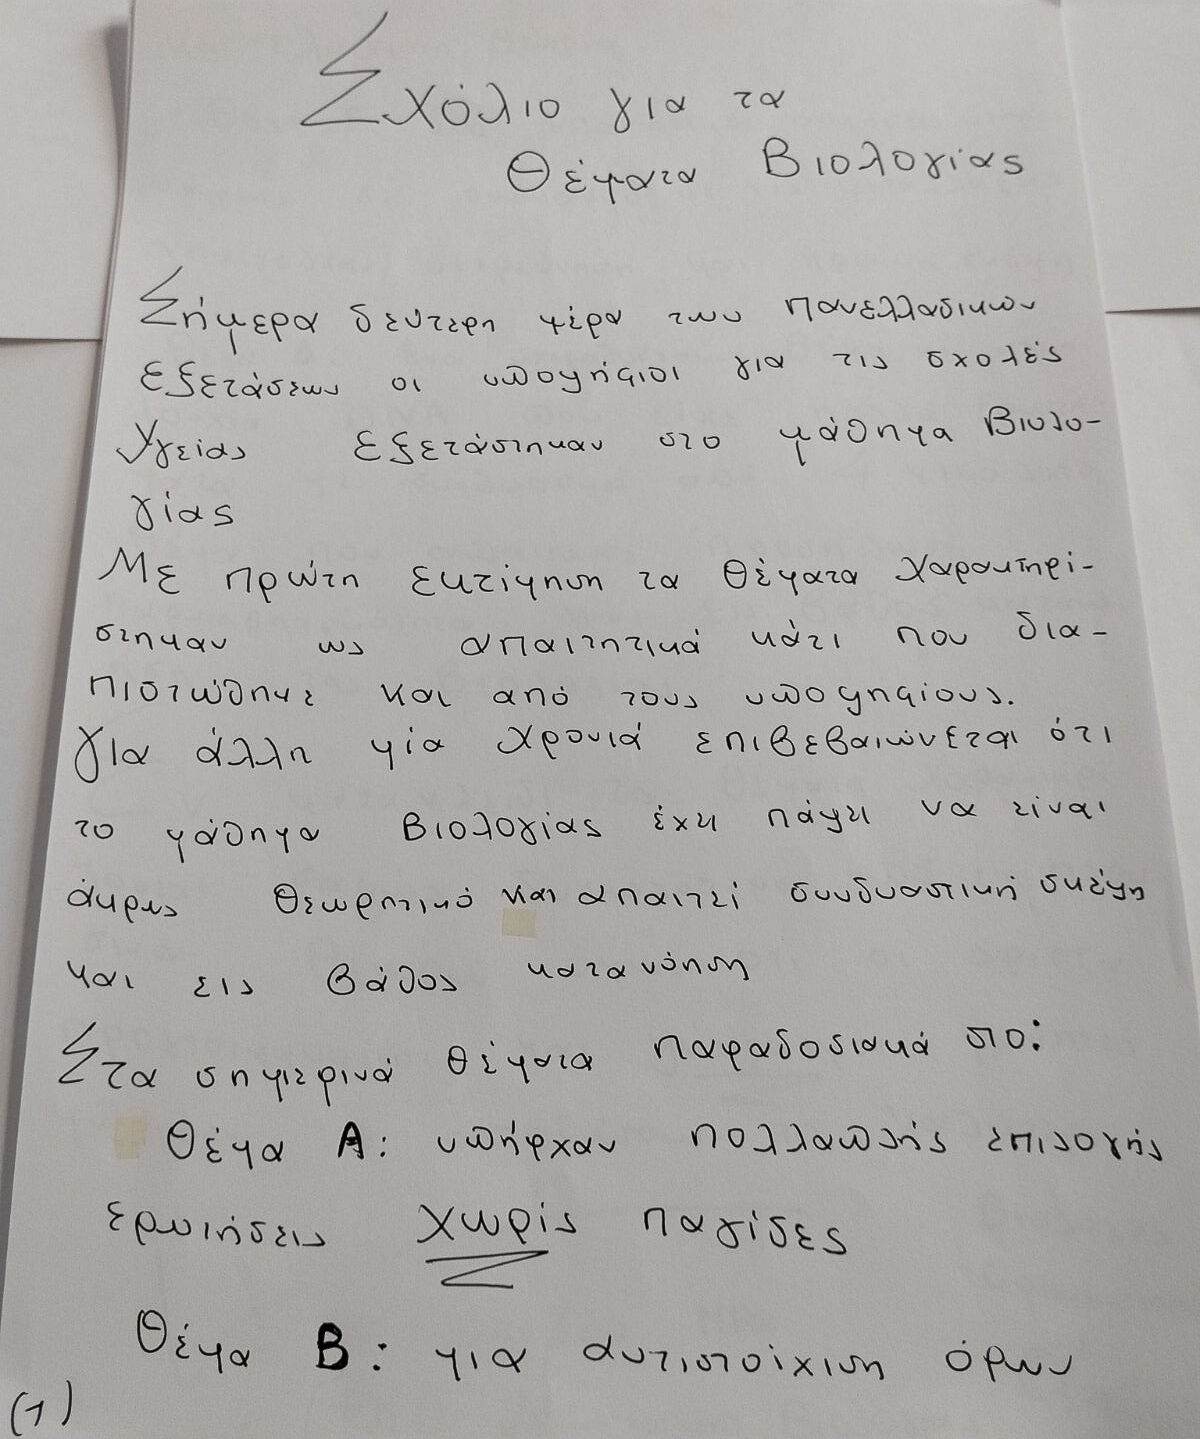 Σχόλιο για τα
Θέματα Βιολογίας
Σήμερα δεύτερη μέρα των πανελλαδικών
εξετάσεων οι υποψήφιοι για τις σχολές
Υγείας εξετάστηκαν στο μάθημα Βιολο-
γίας
Με πρώτη εκτίμηση τα θέματα χαρακτηρί-
στηκαν ως απαιτητικά κάτι που δια-
πιστώθηκε και από τους υποψηφίους.
Για άλλη μία χρονιά επιβεβαιώνεται ότι
το μάθημα Βιολογίας έχει πάψει να είναι
άκρως θεωρητικό και απαιτεί συνδυαστική σκέψη
και εις βάθος κατανόηση
Στα σημερινά θέματα παραδοσιακά στο:
Θέμα Α: υπήρχαν πολλαπλής επιλογής
ερωτήσεις χωρίς παγίδες
Θέμα Β: μια αντιστοίχιση όρων
(1)